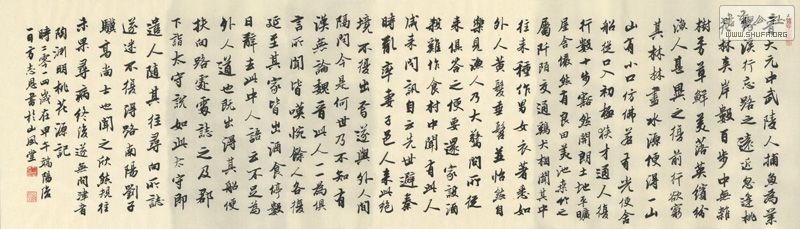 晉太元中武陵人捕魚為業
緣溪行忘路之遠近忽逢桃
花林夾岸數百步中無雜
樹芳草鮮美落英繽紛
漁人甚異之復前行欲窮
其林林盡水源便得一山
山有小口仿佛若有光便舍
船從口入初極狹才通人復
行數十步豁然開朗土地平曠
屋舍儼然有良田美池桑竹之
屬阡陌交通鷄犬相聞其中
往來種作男女衣著悉如
外人黃髮垂髫並怡然自
樂見漁人乃大驚問所從
來俱答之便要還家設酒
殺雞作食村中聞有此人
咸來問訊自云先世避秦
時亂率妻子邑人來此絕
境不復出焉遂與外人間
隔問今是何世乃不知有
漢無論魏晉此人一一為具
言所聞皆嘆惋餘人各復
延至其家皆出酒食停數
日辭去此中人語云不足為
外人道也既出得其船便
扶向路處處誌之及郡
下詣太守說如此太守即
遣人隨其往尋向所誌
遂迷不復得路南陽劉子
驥高尚士也聞之欣然規往
未果尋病終後遂無問津者
陶渊明桃花源記
時二零一四歲在甲午端陽後
一日方志恩書於山風堂
WWW.SHUFA.ORG